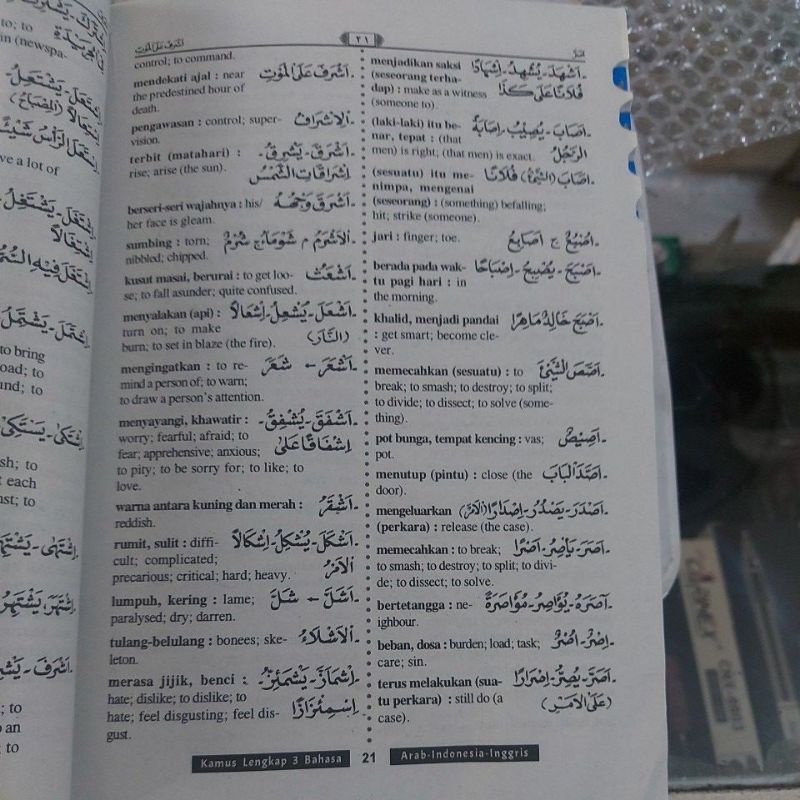 اَشْرَفَ عَلَى المَوْتِ
٢١
control; to command.
mendekati ajal : near اَشْرَفَ عَلَى المَوْتِ.
the predestined hour of
death.
pengawasan : control; super- اَلْاِشْرَافُ.
vision.
terbit (matahari) : اَشْرَقَ ـ يُشْرِقُ.
rise; arise (the sun). اِشْرَاقَاتِ الشَّمْسِ
berseri-seri wajahnya : his/ اَشْرَقَ وَجْهُهُ.
her face is gleam.
sumbing : torn; اَلْاَشْرَمُ م شَرْمَاءُ ج شُرْمٌ.
nibbled; chipped.
kusut masai, berurai : to get loo- اَشْعَثَ.
se; to fall asunder; quite confused.
menyalakan (api) : اَشْعَلَ ـ يُشْعِلُ ـ اِشْعَالاً.
turn on; to make (النَّارَ)
burn; to set in blaze (the fire).
mengingatkan : to re- اَشْعَرَ ← شَعَرَ.
mind a person of; to warn;
to draw a person's attention.
menyayangi, khawatir : اَشْفَقَ ـ يُشْفِقُ ـ
worry; fearful; afraid; to اِشْفَاقًا عَلَى
fear; apprehensive; anxious;
to pity; to be sorry for; to like; to
love.
warna antara kuning dan merah : اَشْقَرُ.
reddish.
rumit, sulit : diffi- اَشْكَلَ ـ يُشْكِلُ ـ اِشْكَالاً.
cult; complicated; الْاَمْرُ
precarious; critical; hard; heavy.
lumpuh, kering : lame; اَشَلَّ ← شَلَّ.
paralysed; dry; darren.
tulang-belulang : bonees; ske- اَلْاَشْلَاءُ.
leton.
merasa jijik, benci : اِشْمَأَزَّ ـ يَشْمَئِزُّ.
hate; dislike; to dislike; to اِشْمِئْزَازًا
hate; feel disgusting; feel dis-
gust.
menjadikan saksi اَشْهَدَ ـ يُشْهِدُ ـ اِشْهَادًا.
(seseorang terha- فُلَانًا عَلَى كَذَا
dap) : make as a witness
(someone to).
(laki-laki) itu be- اَصَابَ ـ يُصِيْبُ ـ اِصَابَةً.
nar, tepat : (that الرَّجُلُ
men) is right; (that men) is exact.
(sesuatu) itu me- اَصَابَ (الشَّيْءُ) فُلَانًا.
nimpa, mengenai
(seseorang) : (something) befalling;
hit; strike (someone).
jari : finger; toe. اُصْبُعٌ ج اَصَابِعُ.
berada pada wak- اَصْبَحَ ـ يُصْبِحُ ـ اِصْبَاحًا.
tu pagi hari : in
the morning.
khalid, menjadi pandai اَصْبَحَ خَالِدٌ مَاهِرًا.
: get smart; become cle-
ver.
memecahkan (sesuatu) : to الشَّيْئَ
break; to smash; to destroy; to split;
to divide; to dissect; to solve (some-
thing).
pot bunga, tempat kencing : vas; اَصِيْصٌ.
pot.
menutup (pintu) : close (the الْبَابَ
door).
mengeluarkan اَصْدَرَ ـ يَصْدُرُ ـ اِصْدَارًا (الْاَمْرَ).
(perkara) : release (the case).
memecahkan : to break; اَصَرَ ـ يَأْصِرُ ـ اَصْرًا.
to smash; to destroy; to split; to divi-
de; to dissect; to solve.
bertetangga : ne- آصَرَهُ ـ يُؤَاصِرُ ـ مُؤَاصَرَةً.
ighbour.
beban, dosa : burden; load; task; اِصْرٌ ـ اُصْرٌ.
care; sin.
terus melakukan (sua- اَصَرَّ ـ يُصِرُّ ـ اِصْرَارًا.
tu perkara) : still do (a (عَلَى الْاَمْرِ)
case).
Kamus Lengkap 3 Bahasa 21 Arab-Indonesia-Inggris
in (newspa-
ve a lot of
to bring
oad; to
und; to
sh; to
t each
nst; to
; to
o an
; to